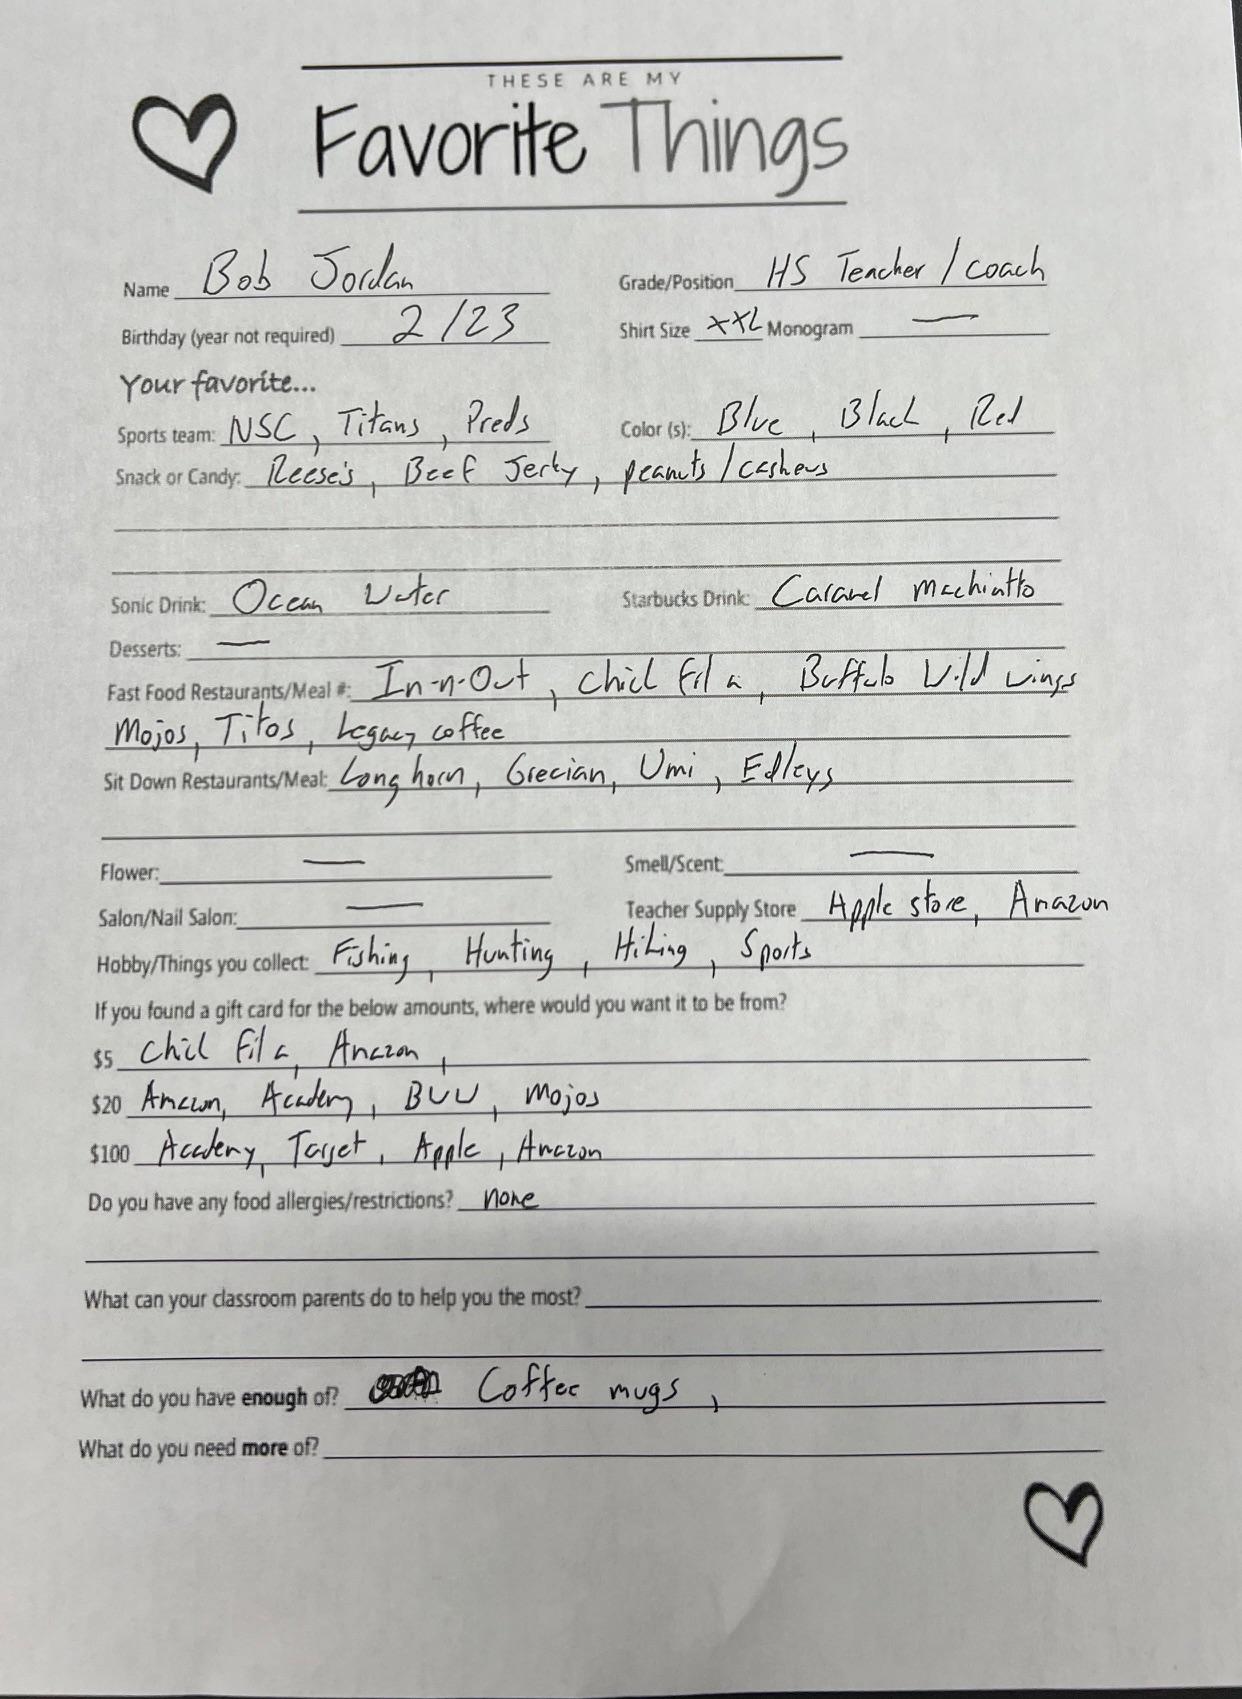 THESE ARE MY
Favorite Things
Name Bob Jordan Grade/Position HS Teacher / coach
Birthday (year not required) 2/23 Shirt Size XXL Monogram —
Your favorite...
Sports team: NSC, Titans, Preds Color (s): Blue, Black, Red
Snack or Candy: Reese's, Beef Jerky, peanuts/cashews
Sonic Drink: Ocean Water Starbucks Drink: Caramel Macchiatto
Desserts: —
Fast Food Restaurants/Meal #: In-n-Out, Chick fil a, Buffalo Wild wings
Mojos, Titos, Legacy coffee
Sit Down Restaurants/Meal: Longhorn, Grecian, Umi, Edleys
Flower: — Smell/Scent: —
Salon/Nail Salon: — Teacher Supply Store Apple store, Amazon
Hobby/Things you collect: Fishing, Hunting, Hiking, Sports
If you found a gift card for the below amounts, where would you want it to be from?
$5 Chick fil a, Amazon,
$20 Amazon, Academy, BWW, Mojos
$100 Academy, Target, Apple, Amazon
Do you have any food allergies/restrictions? none
What can your classroom parents do to help you the most?
What do you have enough of? Coffee mugs,
What do you need more of?